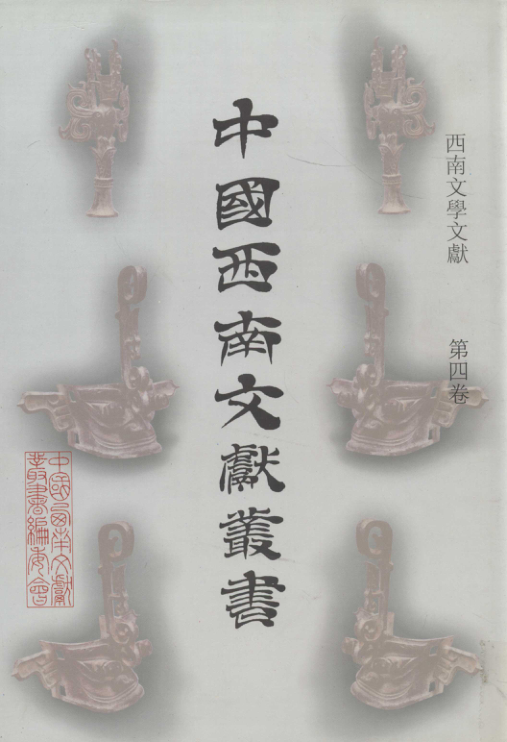 西南文學文獻 第四卷
中國西南文獻叢書
中國西南文獻
叢書編委會